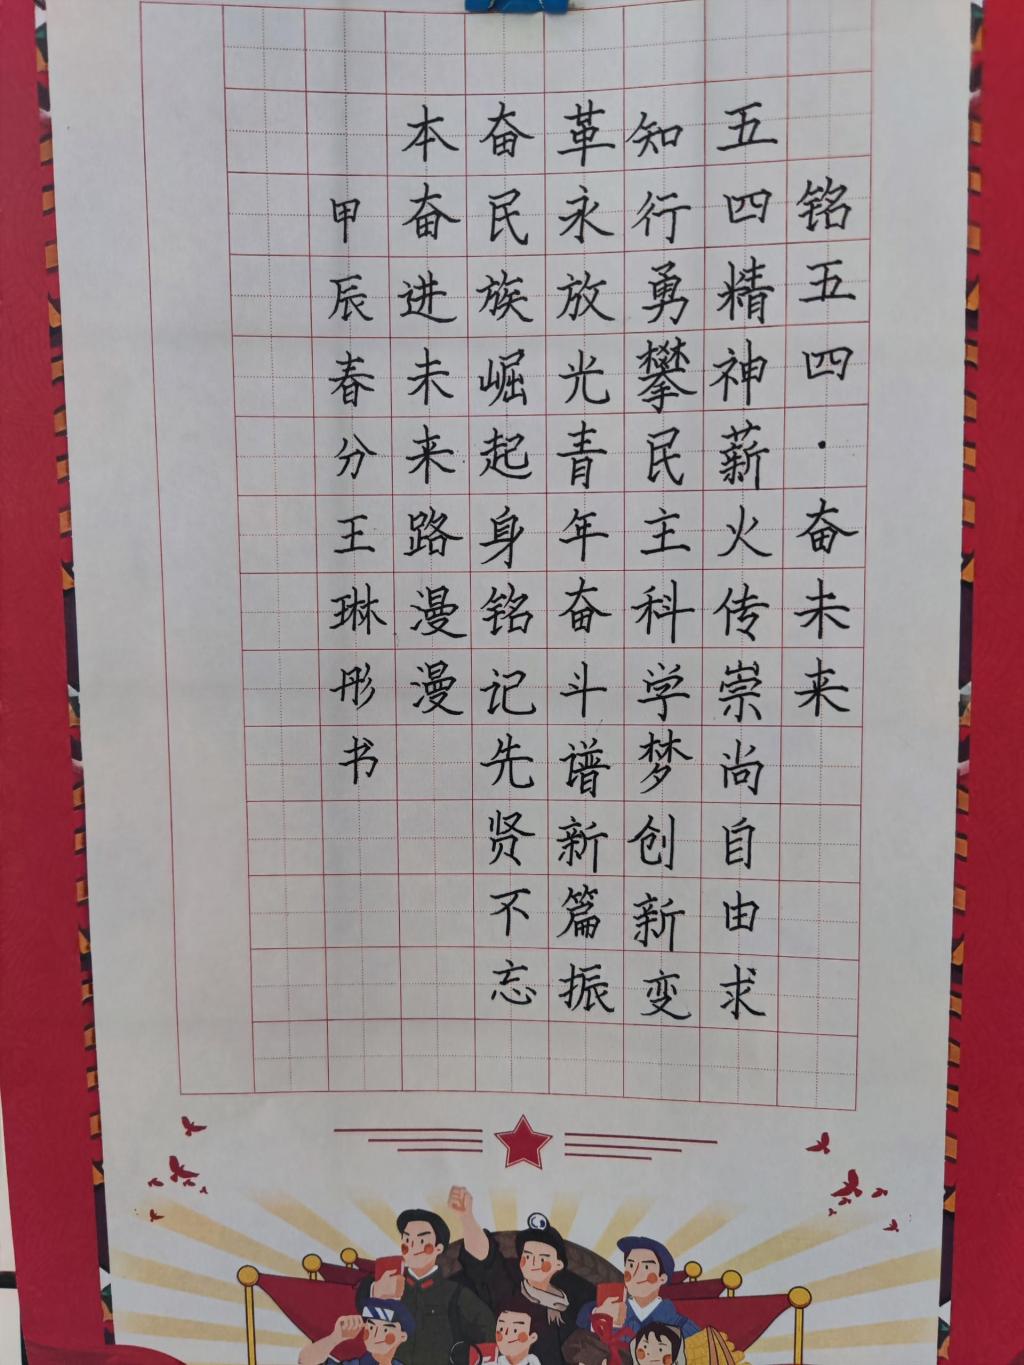 铭五四·奋未来
五四精神薪火传崇尚自由求
知行勇攀民主科学梦创新变
革永放光青年奋斗谱新篇振
奋民族崛起身铭记先贤不忘
本奋进未来路漫漫
甲辰春分王琳彤书